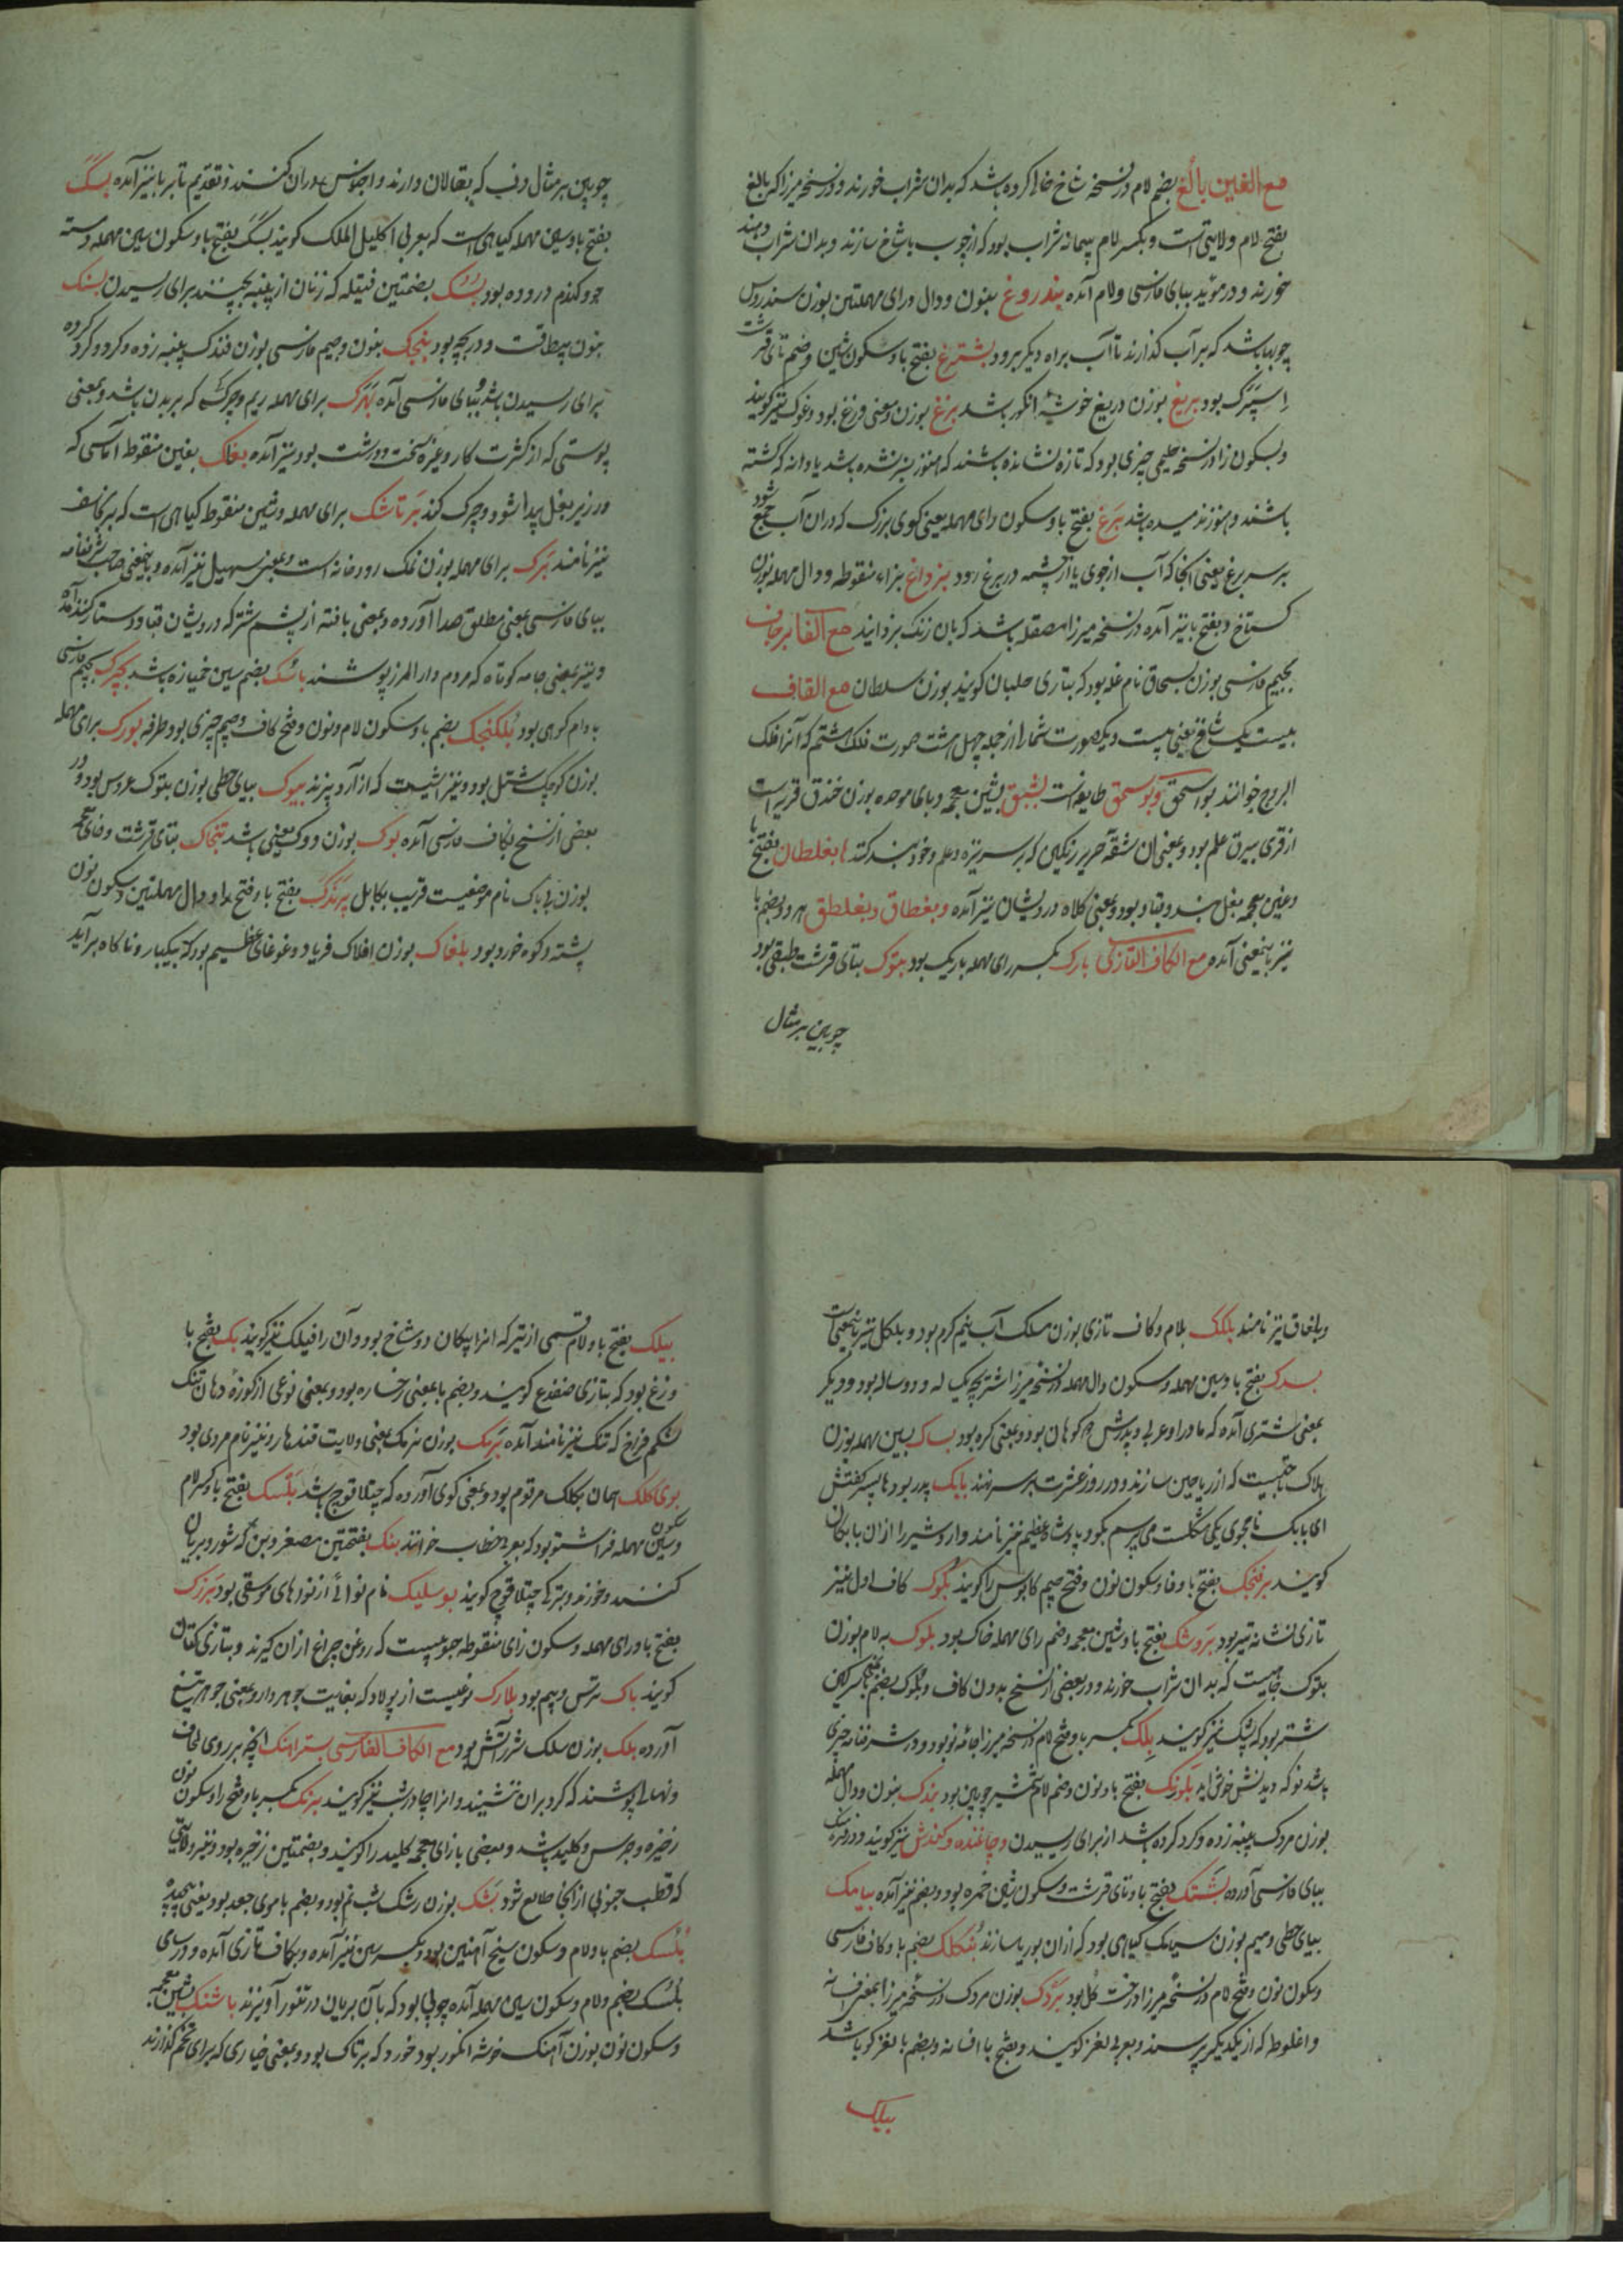 مع الغین بالغ بضم لام در نسخه شاخ خالی کرده باشد که بدان شراب خورند و در نسخه میرزا که بالغ
بفتح لام ولایتی است و بکسر لام پیمانه شراب بود که از چوب یا شاخ سازند و بدان شراب دهند
خورند و در موید ببای فارسی و لام آمده بندروغ بنون و دال و رای مهملتین بوزن سندروس
چوبها باشد که بر آب گذارند تا آب براه دیگر برود بشترغ بفتح با و سکون شین و ضم تای قرشت
اسپرک بود بریغ بوزن دریغ خوشه انگور باشد بزغ بوزن و معنی وزغ بود و غوک نیز گویند
و بسکون زا در نسخه حلیمی چیزی بود که تازه نشانده باشند که هنوز سبز نشده باشد یا دانه که کشته
باشند و هنوز نرسیده باشد برغ بفتح با و سکون رای مهمله یعنی کوی بزرک که در ان آب جمع شود
بر سر برغ یعنی انجا که آب از جوی یا از چشمه در برغ رود بزداغ بزاء منقوطه و دال مهمله بوزن
کستاخ و بفتح با نیز آمده در نسخه میرزا مصقله باشد که بان زنک بزدایند مع الفا برجاف
بجیم فارسی بوزن سحاق نام غله بود که بتازی جلبان گویند بوزن سلطان مع القاف
بیست یک شاخ یعنی بیست و یک صورت شمار از جمله چهل هشت صورت فلک هشتم که آنرا فلک
البروج خوانند بو اسحق و بوسحق طایفه است بشبق بشین معجمه و بای موحده بوزن خندق قریه است
از قری بیرق علم بود و بمعنی ان شقه حریر رنگین که بر سر نیزه و علم و خود بند کنند بغلطاق بفتح با
و غین معجمه بغل بند و قبا و بود و بمعنی کلاه درویشان نیز آمده و بغطاق و بغلطق هر دو بضم با
نیز باینمعنی آمده مع الکاف التازی بارک بکسر رای مهمله باریک بود بتوک بتای قرشت طبقی بود
چوبین بر مثال
چوبین بر مثال دف که بقالان دارند و اجناس در ان کنند و تقدیم تا بر با نیز آمده بسک
بفتح با و سین مهمله گیاهی است که بعربی اکلیل الملک گویند بسک بفتح با و سکون سین مهمله دسته
جو و گندم دروده بود بسک بضمتین فتیله که زنان از پنبه پیچند برای ریسیدن بنک
بنون پیطاقت و دریچه بود بنجک بنون و جیم فارسی بوزن فندک پنبه زده و کرد کرده
برای ریسیدن باشد و ببای فارسی آمده بهرک برای مهمله ریم و چرک که بر بدن باشد و بمعنی
پوستی که از کثرت کار و غیره سخت و درشت بود نیز آمده بغلک بغین منقوطه آماسی که
در زیر بغل پیدا شود و چرک کند برتاشک برای مهمله و شین منقوطه گیاهی است که برنجاسف
نیز نامند برک برای مهمله بوزن نمک رودخانه است و بمعنی سهیل نیز آمده و باینمعنی صاحب شرفنامه
ببای فارسی بمعنی مطلق صدا آورده و بمعنی بافته از پشم شتر که درویشان قبا و دستار کنند آمده
و نیز بمعنی جامه کوتاه که مردم دار المرز پوشند باسک بضم سین خمیازه باشد بجرک بجیم فارسی
بادام کوهی بود بلکنجک بضم با و سکون لام و نون و فتح کاف و جیم چیزی بود طرفه بورک برای مهمله
بوزن کوچک شتل بود و نیز آشیست که از آرد پزند بیوک بیای حطی بوزن بتوک عروس بود و در
بعضی از نسخ بکاف فارسی آمده بوک بوزن و وک یعنی باشد تنجاک بتای قرشت و خای معجمه
بوزن بابک نام موضعیست قریب بکابل بردک بفتح با و فتح را و دال مهملتین و سکون نون
پشته و کوه خورد بود بلغاک بوزن افلاک فریاد و غوغای عظیم بود که بیکبار و ناکاه برآید
و بلغاق نیز نامند بلکک بلام و کاف تازی بوزن سلک آب نیم کرم بود و بلکل نیز باینمعنی است
بسدک بفتح با و سین مهمله و سکون دال مهمله در نسخه میرزا اشتر بچه یک له و دو ساله بود و دیگر
بمعنی شتری آمده که مادر او عربی و پدرش دو کوهان بود و بمعنی کره بود بساک بسین مهمله بوزن
هلاک تاجیست که از ریاحین سازند و در روز عشرت بر سر نهند بابک پدر بود ها پسر کفتش
ای بابک نامجوی یکی مشکلت می پرسم بکو و پادشاه عظیم نیز نامند و اردشیر را از ان بابکان
گویند برفنجک بفتح با و فا و سکون نون و فتح جیم کابوس را گویند بکوک کاف اول نیز
تازی نشانه تیر بود بروشک بفتح با و شین معجمه و ضم رای مهمله خاک بود بلوک به لام بوزن
بتوک جامیست که بدان شراب خورند و در بعضی از نسخ بدون کاف و بلوک بضم بمعنی سرکین
شتر بود که پشک نیز گویند بلک بکسر با و فتح لام در نسخه میرزا جامه نو بود و در شرفنامه چیزی
باشد نو که دیدنش خوش اید بلونک بفتح با و نون و ضم لام شمشیر چوبین بود بندک بنون و دال مهمله
بوزن مردک پنبه زده و کرد کرده باشد از برای ریسیدن و چاغنده و کغندش نیز گویند و در فرهنگ
ببای فارسی آورده بشتک بفتح با و تای قرشت و سکون شین خمره بود و بضم نیز آمده بیامک
بیای حطی و میم بوزن سیامک گیاهی بود که از ان بوریا سازند بنکلک بضم با و کاف فارسی
و سکون نون و فتح لام در نسخه میرزا درخت گل بود بردک بوزن مردک در نسخه میرزا بمعنی افسانه
و اغلوطه که از یکدیگر پرسند و بعربی لغز گویند و بفتح با افسانه و بضم با لغز کو باشد
بیلک
بیلک بفتح با و لام قسمی از تیر که انرا پیکان دو شاخ بود و آن را فیلک نیز گویند بک بفتح با
وزغ بود که بتازی ضفدع گویند و بضم با بمعنی رخساره بود و بمعنی نوعی از کوزه دهان تنک
شکم فراخ که تنک نیز نامند آمده برمک بوزن نرمک بمعنی ولایت قندهار و نیز نام مردی بود
بوی کلک همان بکلک مرقوم بود و بمعنی کوی آورده که چتلا قوج باشد بلسک بفتح با و کسر لام
و سکون سین مهمله فراشتو بود که بعربی خطاف خوانند بنک بفتحتین مصغر و بن که شور و بریان
کنند و خورند و بترکی چتلا قوج گویند بوسلیک نام نوائی از نواهای موسقی بود برزک
بفتح با و رای مهمله و سکون زای منقوطه حبوبیست که روغن چراغ از ان گیرند و بتازی کتان
گویند باک ترس و بیم بود بلارک نوعیست از پولاد که بغایت جوهر دار و بمعنی جوهر تیغ
آورده بلک بوزن سلک شرر آتش بود مع الکاف الفارسی بسترآهنک انچه بر روی لحاف
و نهالی پوشند که گرد بر ان ننشیند و انرا چادرشب نیز گویند برنک بکسر با و فتح را و سکون نون
زنجیره و جرس و کلید باشد و بعضی با زای معجمه کلید را گویند و بضمتین زنجیره بود و نیز ولایتی
که قطب جنوبی از انجا طالع شود بشک بوزن رشک شب نم بود و بضم با موی جعد بود یعنی پیچیده
بلسک بضم با و لام و سکون سین سیخ آهنین بود و بکسر سین نیز آمده و بکاف تازی آمده و در سامی
بلسک بضم و لام و سکون سین مهمله آمده چوبی بود که بآن بریان در تنور آویزند باشنک بشین معجمه
و سکون نون بوزن آهنک خوشه انگور بود خورد که بر تاک بود و بمعنی خیاری که برای تخم گذارند